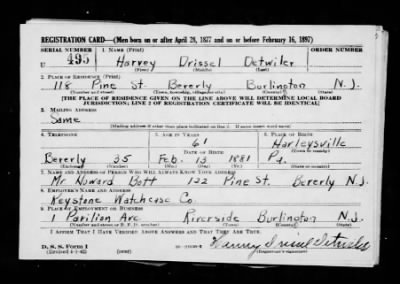 REGISTRATION CARD—(Men born on or after April 28, 1877 and on or before February 16, 1897)
SERIAL NUMBER 1. NAME (Print) ORDER NUMBER
U 495 Harvey Drissel Detwiler
(First) (Middle) (Last)
2. PLACE OF RESIDENCE (Print)
118 Pine St. Beverly Burlington N.J.
(Number and street) (Town, township, village, or city) (County) (State)
[THE PLACE OF RESIDENCE GIVEN ON THE LINE ABOVE WILL DETERMINE LOCAL BOARD
JURISDICTION; LINE 2 OF REGISTRATION CERTIFICATE WILL BE IDENTICAL]
3. MAILING ADDRESS
Same
[Mailing address if other than place indicated on line 2. If same insert word same]
4. TELEPHONE 5. AGE IN YEARS 6. PLACE OF BIRTH
61 Harleysville
DATE OF BIRTH
Beverly 35 Feb. 13 1881 Pa.
(Exchange) (Number) (Mo.) (Day) (Yr.) (State or country)
7. NAME AND ADDRESS OF PERSON WHO WILL ALWAYS KNOW YOUR ADDRESS
Mr Howard Bott 122 Pine St. Beverly N.J.
8. EMPLOYER'S NAME AND ADDRESS
Keystone Watchcase Co.
9. PLACE OF EMPLOYMENT OR BUSINESS
1 Pavilion Ave Riverside Burlington N.J.
(Number and street or R. F. D. number) (Town) (County) (State)
I AFFIRM THAT I HAVE VERIFIED ABOVE ANSWERS AND THAT THEY ARE TRUE.
D. S. S. Form 1
(Revised 4-1-42) Harvey Drissel Detwiler